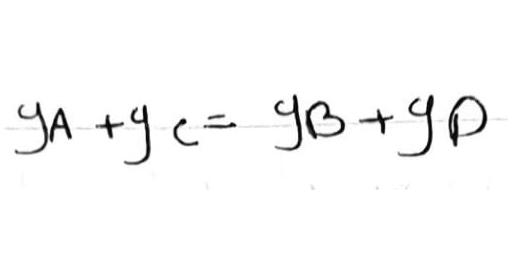 yA + yC = yB + yD